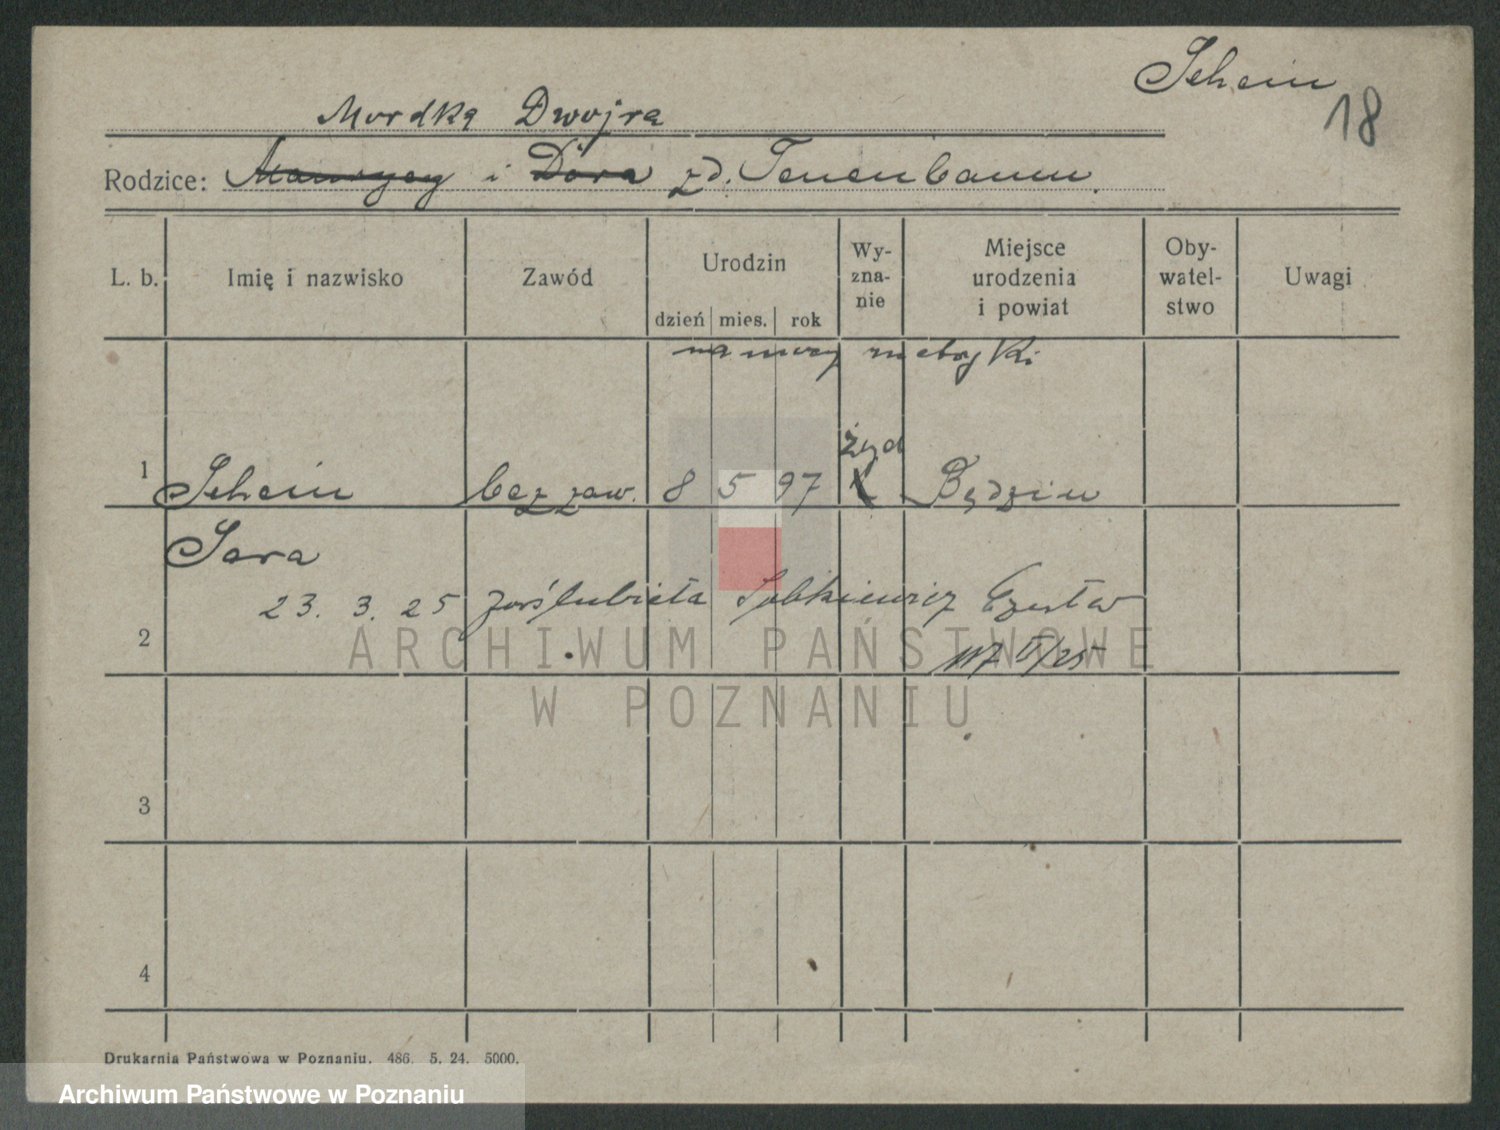 Schein
18
Mordka Dwojra
Rodzice: Maurycy i Dora zd. Tenenbaum.
L. b. Imię i nazwisko Zawód Urodzin dzień mies. rok Wy-znanie Miejsce urodzenia i powiat Oby-watel-stwo Uwagi
na mocy metryki
żyd
1 Schein bez zaw. 8 5 97 Będzin
Sara
23. 3. 25 zaślubiła Sobkiewicz Czesław
2
117 II/25
3
4
Drukarnia Państwowa w Poznaniu. 486. 5. 24. 5000.
ARCHIWUM PAŃSTWOWE
W POZNANIU
Archiwum Państwowe w Poznaniu